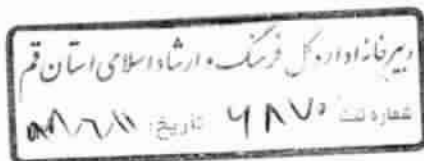 دبیرخانه اداره کل فرهنگ و ارشاد اسلامی استان قم
شماره ثبت ۶۸۷۰ تاریخ: